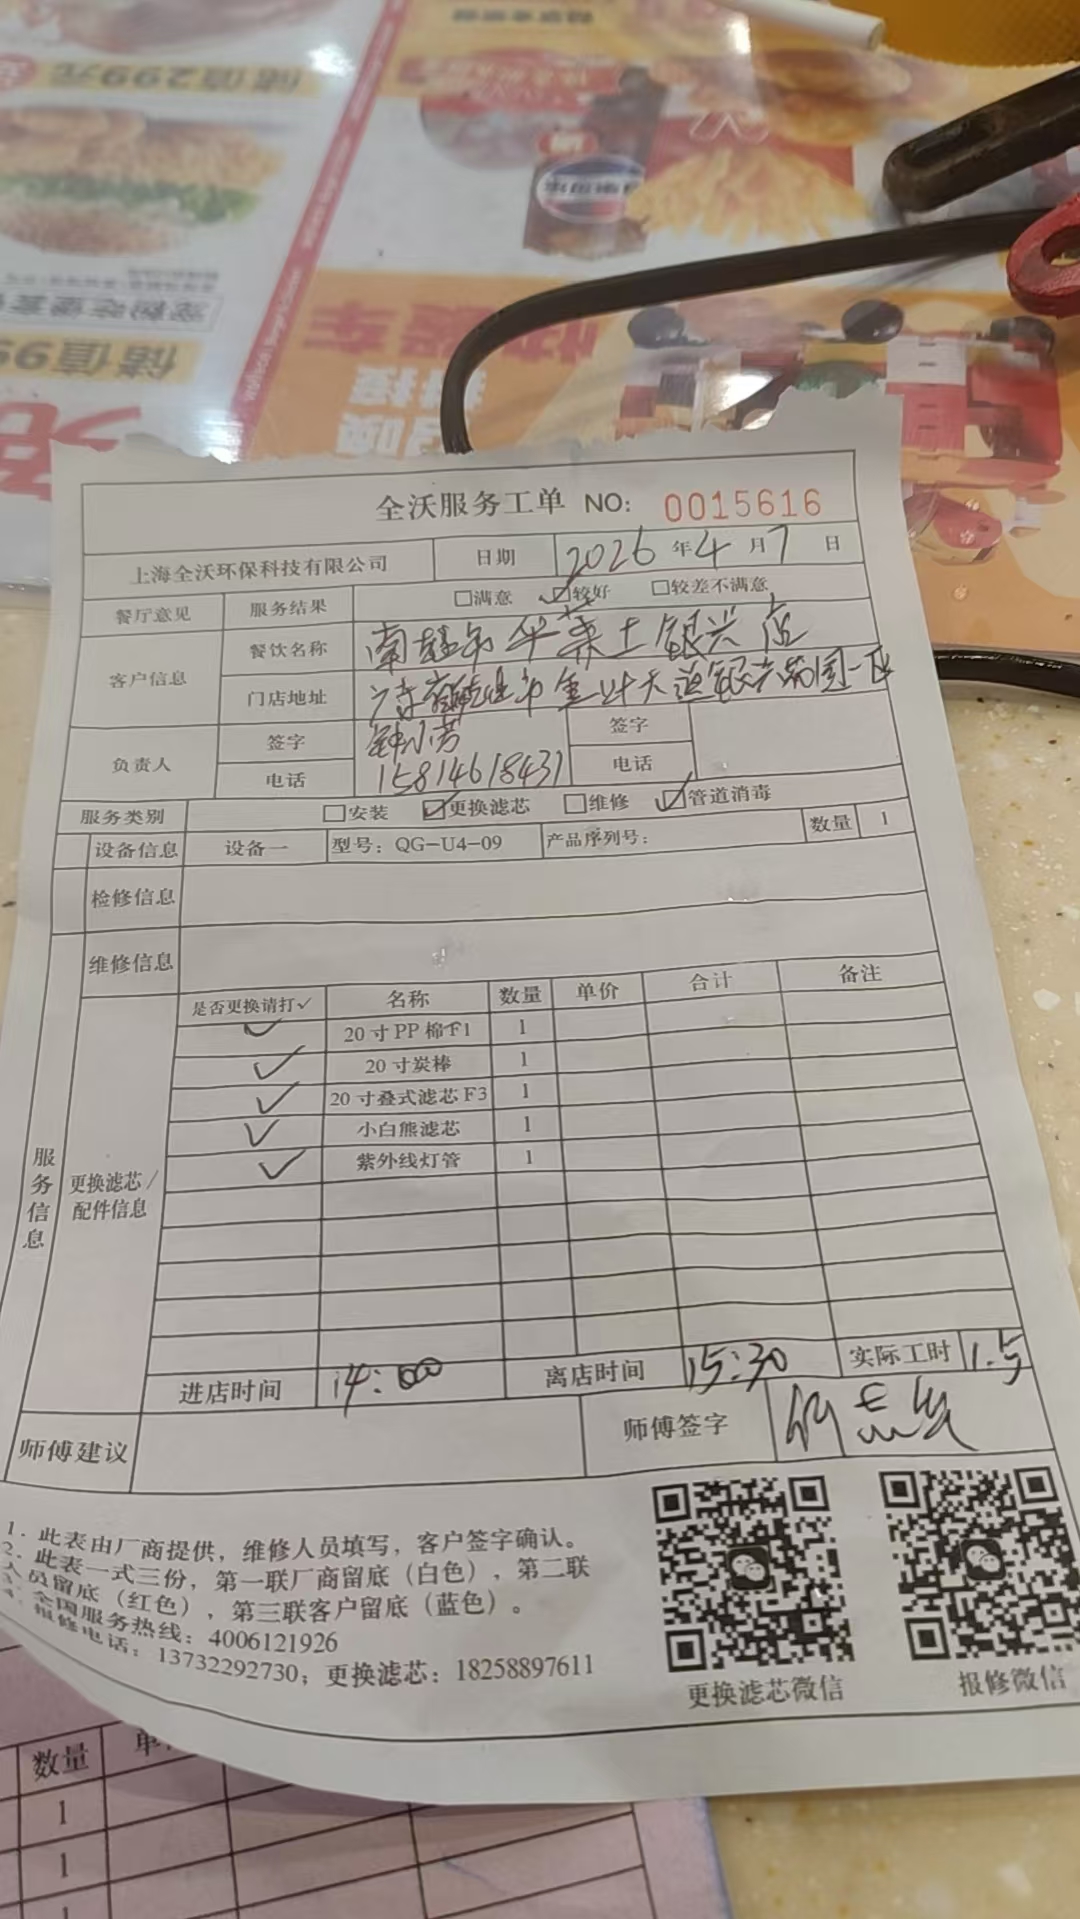 储值299元
储值99
全沃服务工单 NO: 0015616
上海全沃环保科技有限公司 日期 2026年4月7日
餐厅意见 服务结果 □满意 ☑较好 □较差不满意
客户信息 餐饮名称 华莱士银兴店
门店地址
负责人 签字 签字
电话 15814618431 电话
服务类别 □安装 ☑更换滤芯 □维修 ☑管道消毒
设备信息 设备一 型号：QG-U4-09 产品序列号： 数量 1
检修信息
维修信息
服务信息
更换滤芯/配件信息
是否更换请打✓ 名称 数量 单价 合计 备注
✓ 20寸PP棉F1 1
✓ 20寸炭棒 1
✓ 20寸叠式滤芯F3 1
✓ 小白熊滤芯 1
✓ 紫外线灯管 1
进店时间 14: 离店时间 15:30 实际工时 1.5
师傅建议 师傅签字
1. 此表由厂商提供，维修人员填写，客户签字确认。
2. 此表一式三份，第一联厂商留底（白色），第二联
人员留底（红色），第三联客户留底（蓝色）。
3. 全国服务热线：4006121926
4. 报修电话：13732292730；更换滤芯：18258897611
更换滤芯微信 报修微信
数量 单
1
1
1